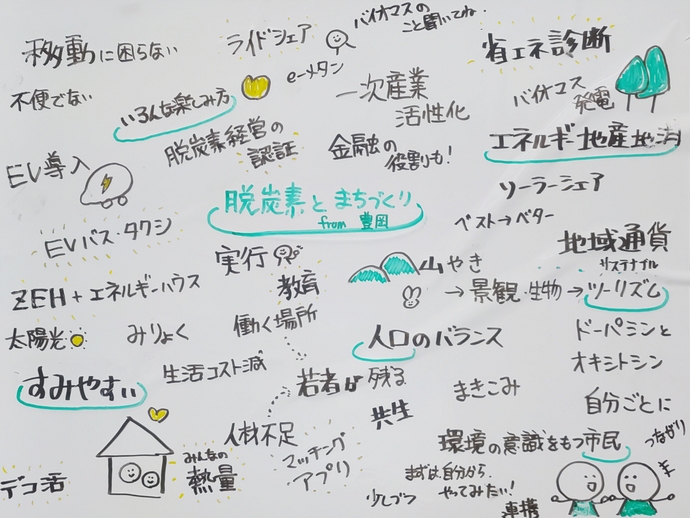 移動に困らない
ライドシェア
バイオマスの
こと聞いてね。
省エネ診断
不便でない
いろんな楽しみ方
e-メタン
一次産業
活性化
バイオマス
発電
EV導入
脱炭素経営の
認証
金融の
役割も!
エネルギー地産地消
脱炭素とまちづくり
from 豊岡
ソーラーシェア
ベスト→ベター
EVバス・タクシ
実行
山やき
地域通貨
ZEH+エネルギーハウス
教育
→景観・生物→
サステナブル
ツーリズム
太陽光
みりょく
働く場所
人口のバランス
ドーパミンと
オキシトシン
すみやすい
生活コスト減
若者が残る
まきこみ
自分ごとに
共生
人材不足
環境の意識をもつ市民
つながり
デコ活
みんなの
熱量
マッチング
アプリ
まずは自分から
やってみたい!
少しづつ
連携